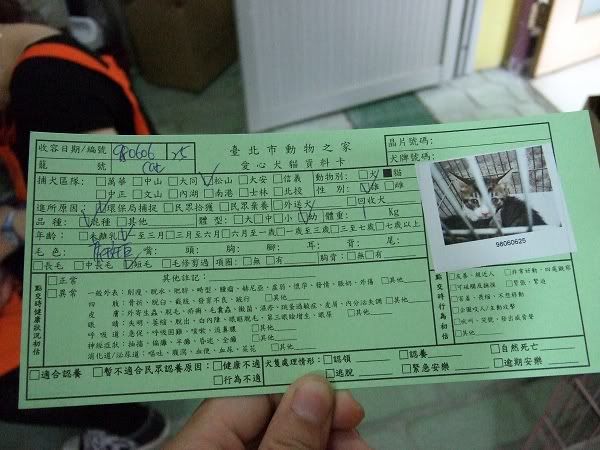 收容日期/編號 980606 25 臺北市動物之家 晶片號碼:
籠號 cat 愛心犬貓資料卡 犬牌號碼:
捕犬區隊: □萬華 □中山 □大同 ☑松山 □大安 □信義 動物別: □犬 ■貓
□中正 □文山 □內湖 □南港 □士林 □北投 性別: ☑雄 □雌
進所原因: ☑環保局捕捉 □民眾拾獲 □民眾棄養 □外送犬 □回收犬
品種: ☑混種 □其他 體型: □大 □中 □小 ☑幼 體重: Kg
年齡: □未離乳 ☑一至三月 □三月至六月 □六月至一歲 □一歲至三歲 □三至七歲 □七歲以上
毛色: 嘴: 頭: 胸: 腳: 耳: 背: 尾:
□長毛 □中長毛 ☑短毛 □毛修剪過 項圈: □無 □有 胸背: □無 □有
98060625
點交時健康狀況初估
□正常 其他註記:
□異常 一般外表: 削瘦、脫水、肥胖、畸型、腫瘤、赫尼亞、虛弱、懷孕、發情、眼奶、外傷 □其他
四肢: 骨折、脫臼、截肢、發育不良、跛行 □其他
皮膚: 外寄生蟲、脫毛、疥癬、毛囊蟲、黴菌、濕疹、跳蚤過敏症、皮屑、內分泌失調 □其他
眼睛: 失明、萎縮、脫出、白內障、眼睫脫毛、第三眼瞼增生、眼屎 □其他
呼吸道: 急促、呼吸困難、咳嗽、流鼻膿 □其他
神經症狀: 抽搐、偏癱、半癱、昏迷、全癱 □其他
消化道/泌尿道: 嘔吐、腹瀉、血便、血尿、尿荒 □其他
點交時行為初估
□友善、親近人 □非常好動、四處觀察
□可碰觸及撫摸 □緊張、緊迫
□害羞、畏縮、不想移動
□企圖咬人/主動攻擊
□吠叫、哭號、發出威脅聲
□其他
□適合認養 □暫不適合民眾認養原因: □健康不適 犬隻處理情形: □認領 □認養 □自然死亡
□行為不適 □逃脫 □緊急安樂 □逾期安樂